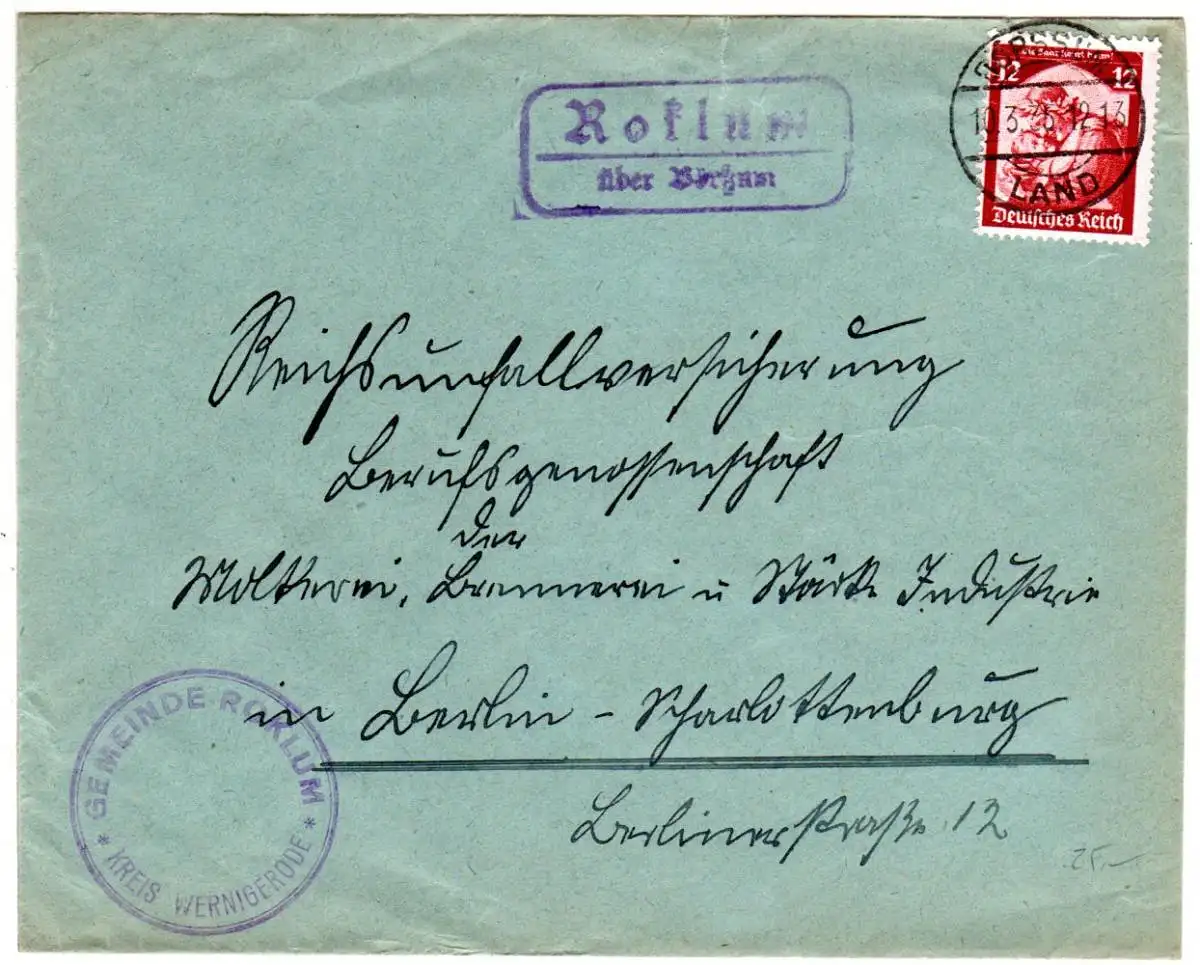 Roklum
über Börßum
Die Saar kehrt heim!
12 12
10.3.35.12-13
LAND
Deutsches Reich
Reichsunfallversicherung
Berufsgenossenschaft
der
Molkerei, Brennerei u Stärke Industrie
in Berlin - Scharlottenburg
Berlinerstraße 12
GEMEINDE ROKLUM
* KREIS WERNIGERODE *
25,-